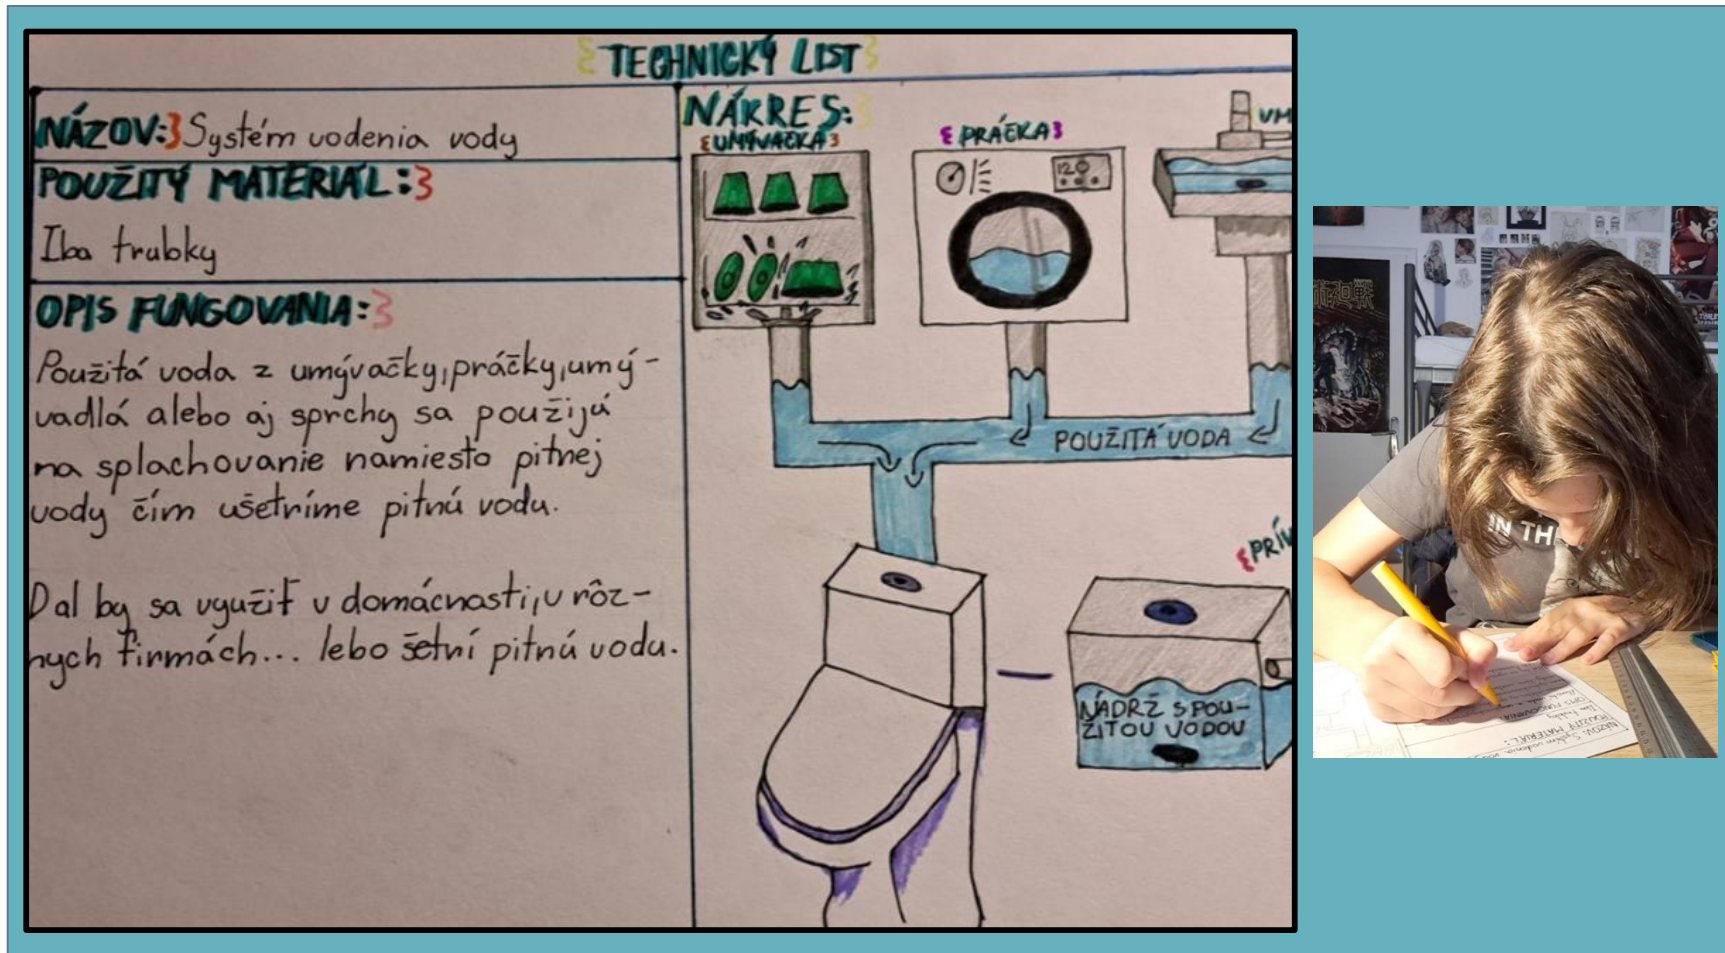 TECHNICKÝ LIST
NÁZOV: Systém vodenia vody
POUŽITÝ MATERIÁL:
Iba trubky
OPIS FUNGOVANIA:
Použitá voda z umývačky, práčky, umý-
vadlá alebo aj sprchy sa použijú
na splachovanie namiesto pitnej
vody čím ušetríme pitnú vodu.
Dal by sa využiť v domácnosti, v rôz-
nych firmách... lebo šetrí pitnú vodu.
NÁKRES:
UMÝVAČKA
PRÁČKA
UM
120
POUŽITÁ VODA
PRÍV
NÁDRŽ S POU-
ŽITOU VODOU
IN TH
NÁZOV: Systém vodenia
POUŽITÝ MATERIÁL:
Iba trubky
OPIS FUNGOVANIA: